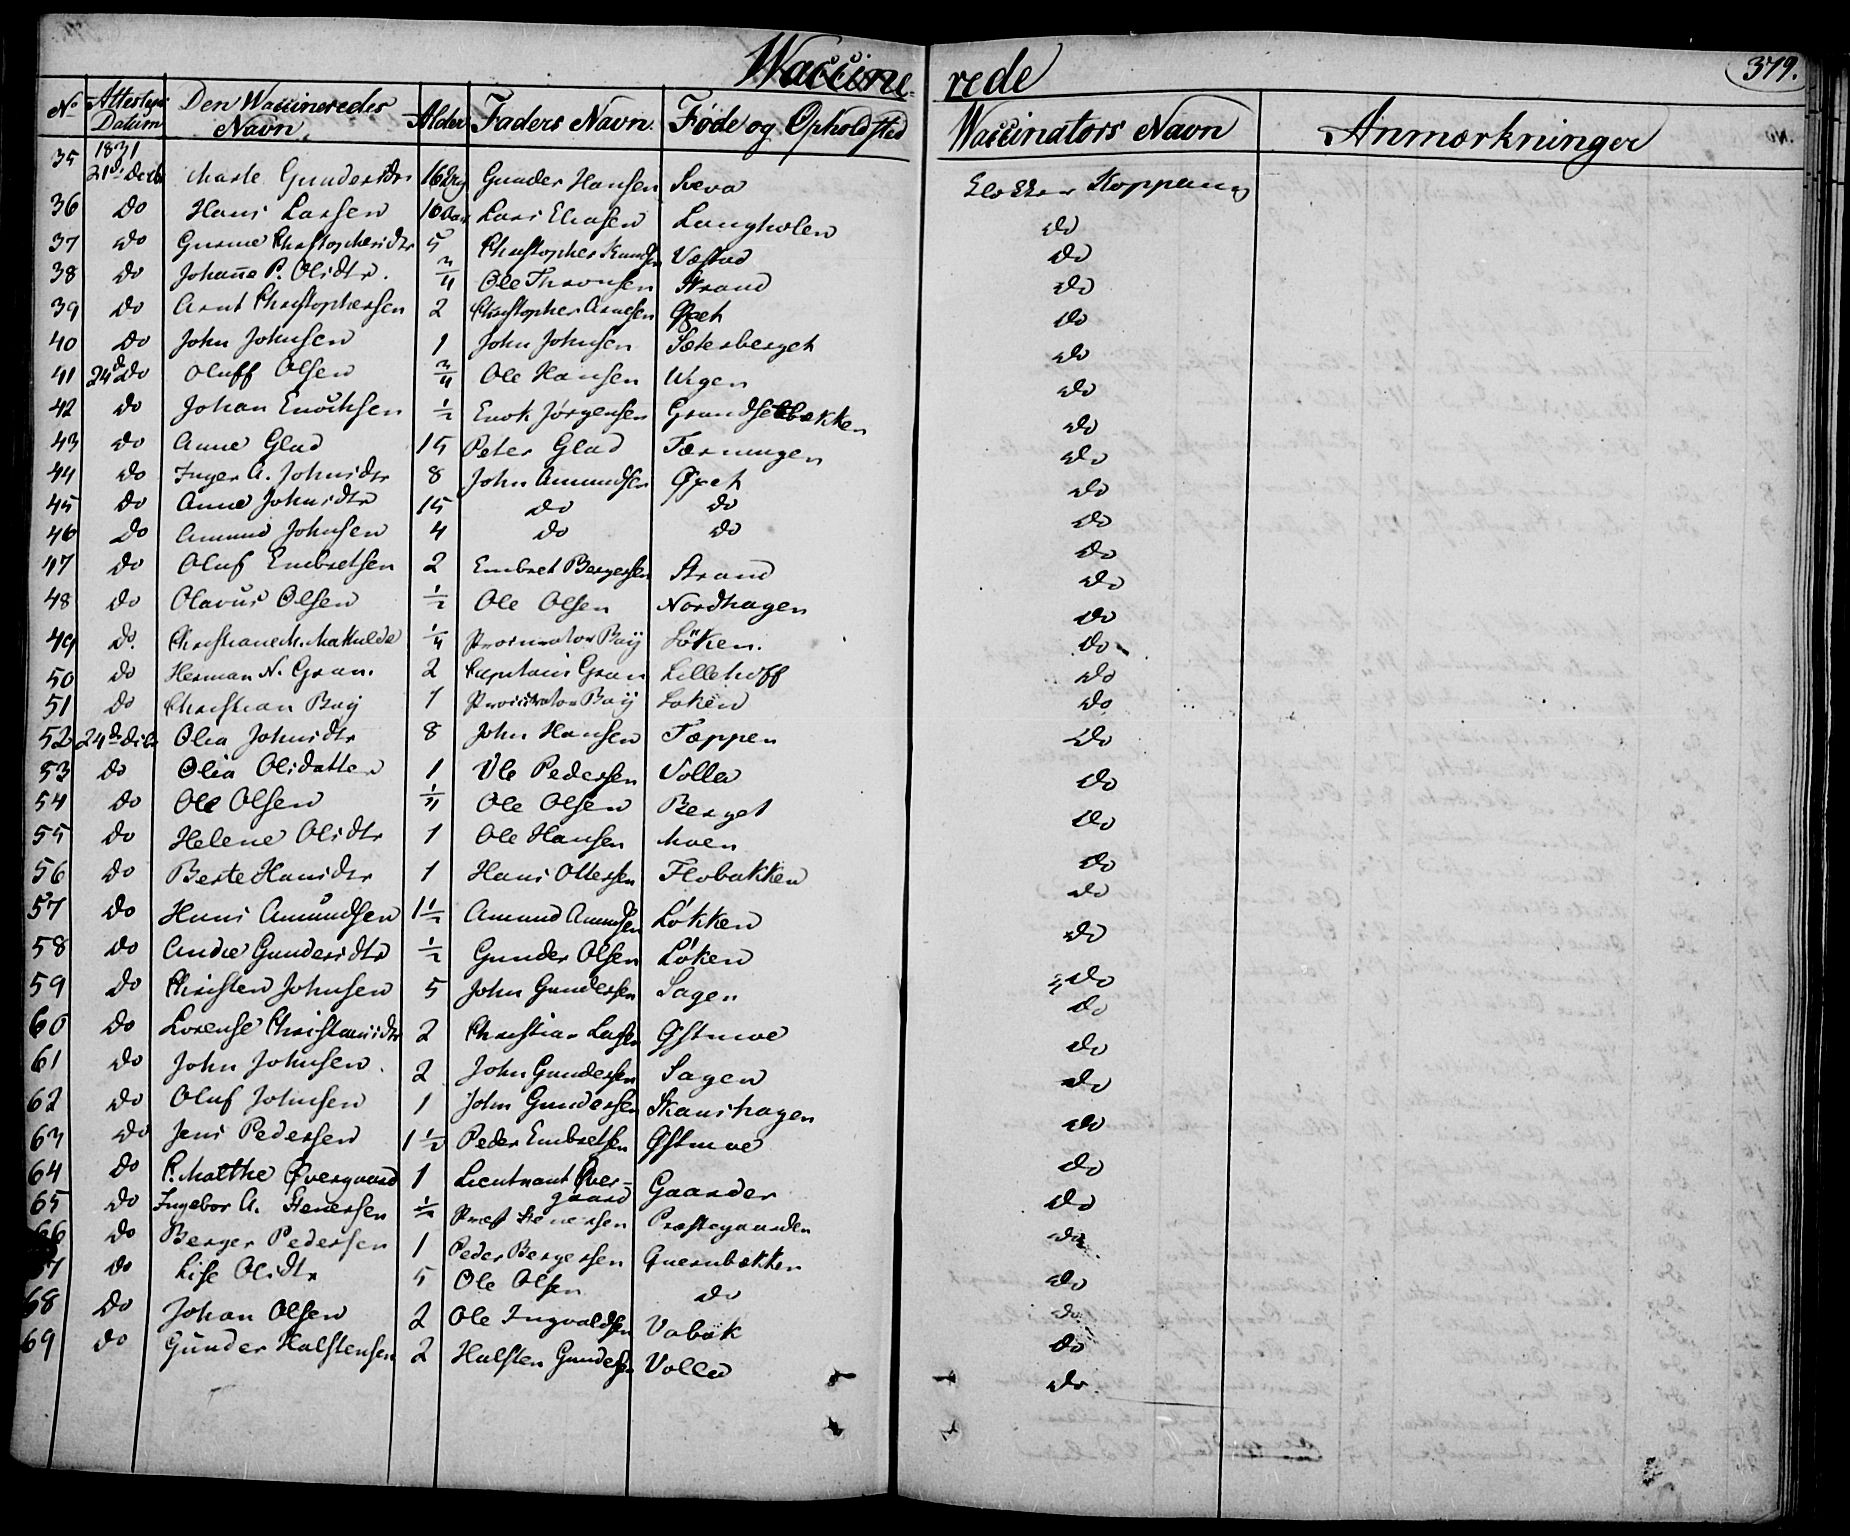 Waccine- rede 379.
No Attestens Datum Den Waccineredes Navn. Alder Faders Navn. Føde og Opholdsted Waccinators Navn Anmærkninger
1831
35 21de Decbr Marte Gundersdtr 16 Gunder Hansen Sveva Klokker Koppang
36 do Hans Larsen 10 Aar Lars Eliasen Langholen do
37 do Gunne Christophersdtr 5 Christopher Knudsen Væstad do
38 do Johanne P. Olsdtr. 3/4 Ole Thronsen Strand do
39 do Arnt Christophersen 2 Christopher Arnesen Øset do
40 do John Johnsen 1 John Johnsen Sætersberget do
41 24de do Oluff Olsen 3/4 Ole Hansen Wigen do
42 do Johan Enochsen 1/2 Enok Jørgensen Grundsetbækken do
43 do Anne Glad 15 Peter Glad Tærningen do
44 do Inger A. Johnsdtr 8 John Amundsen Øset do
45 do Anne Johnsdtr 15 do do do
46 do Amund Johnsen 4 do do do
47 do Oluf Embretsen 2 Embret Bergersen Strand do
48 do Olavus Olsen 1/2 Ole Olsen Nordhagen do
49 do. Christiane M. Mathilde 1/4 Procurator Baÿ Löken. do
50 do Herman N. Gran. 2 Capitain Gran Lillehoff do
51 do Christian Baÿ 1 Procurator Baÿ Loken do
52 24de Decbr Olea Johnsdtr 8 John Hansen Tæppen do
53 do Olia Olsdatter 1 Ole Pedersen Volla do
54 do Ole Olsen 1/4 Ole Olsen Berget do
55 do Helene Olsdtr 1 Ole Hansen Moen do
56 do Berte Hansdtr 1 Hans Ottersen Flobakken do
57 do Hans Amundsen 1 1/2 Amund Amundsen Løkken do
58 do Andrea Gundersdtr 1/2 Gunder Olsen Løken do
59 do Christen Johnsen 5 John Gundersen Sagen do
60 do Lorense Christiansdtr 2 Christian Larsen Østmoe do
61 do John Johnsen. 2 John Gundersen Sagen do
62 do Oluf Johnsen 1 John Gundersen Skaushagen do
63 do Jens Pedersen 1 1/2 Peder Embretsen Østmoe do
64 do P. Malthe Øvergaard 1 Lieutnant Øver-gaard Gaarder do
65 do Ingebor A. Stenersen 1/2 Præst Stenersen Præstegaarden do
66 do Berger Pedersen 1 Peder Bergersen Quernbækken do
67 do Lise Olsdtr 5 Ole Olsen do do
68 do Johan Olsen 2 Ole Ingvaldsen Vabak do
69 do Gunder Halstensen 2 Halsten Gundersen Volla do